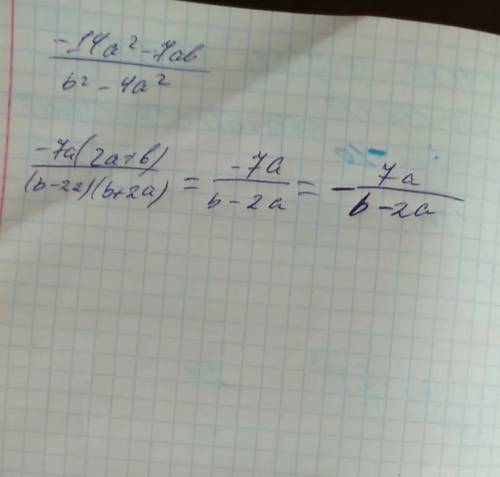 -14a² - 7ab
b² - 4a²
-7a(2a+b) / (b-2a)(b+2a) = -7a / b-2a = - 7a / b-2a